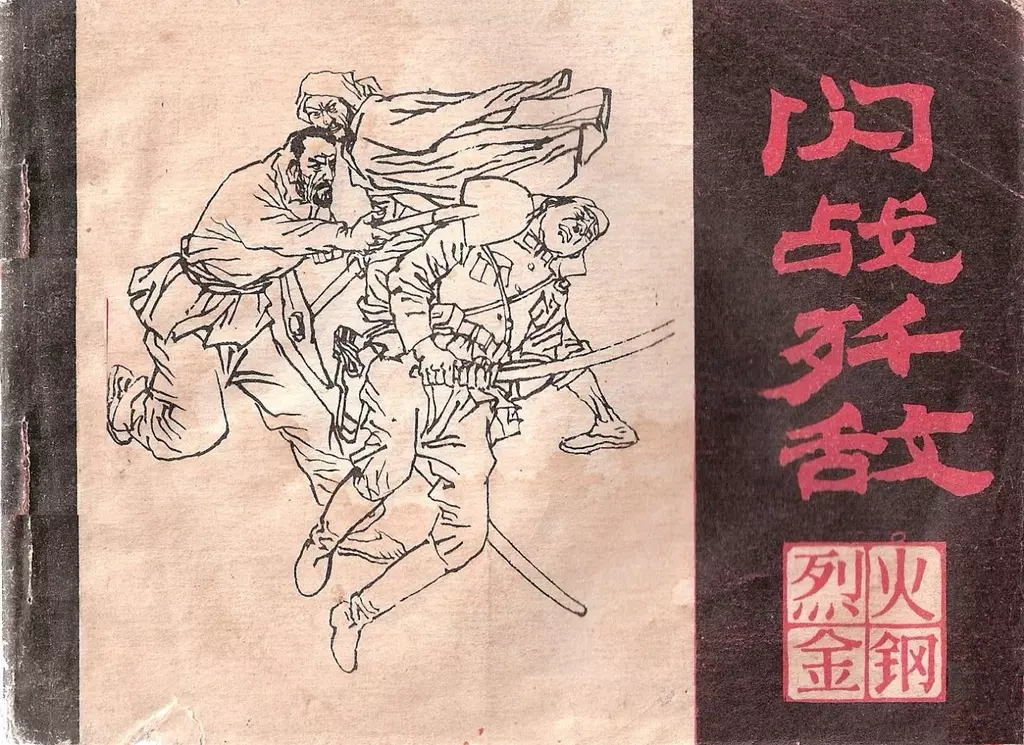 闪战歼敌
烈火
金钢